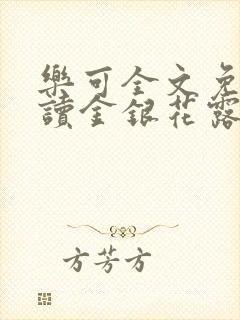 樂可全文免
讀金銀花露
方芳方